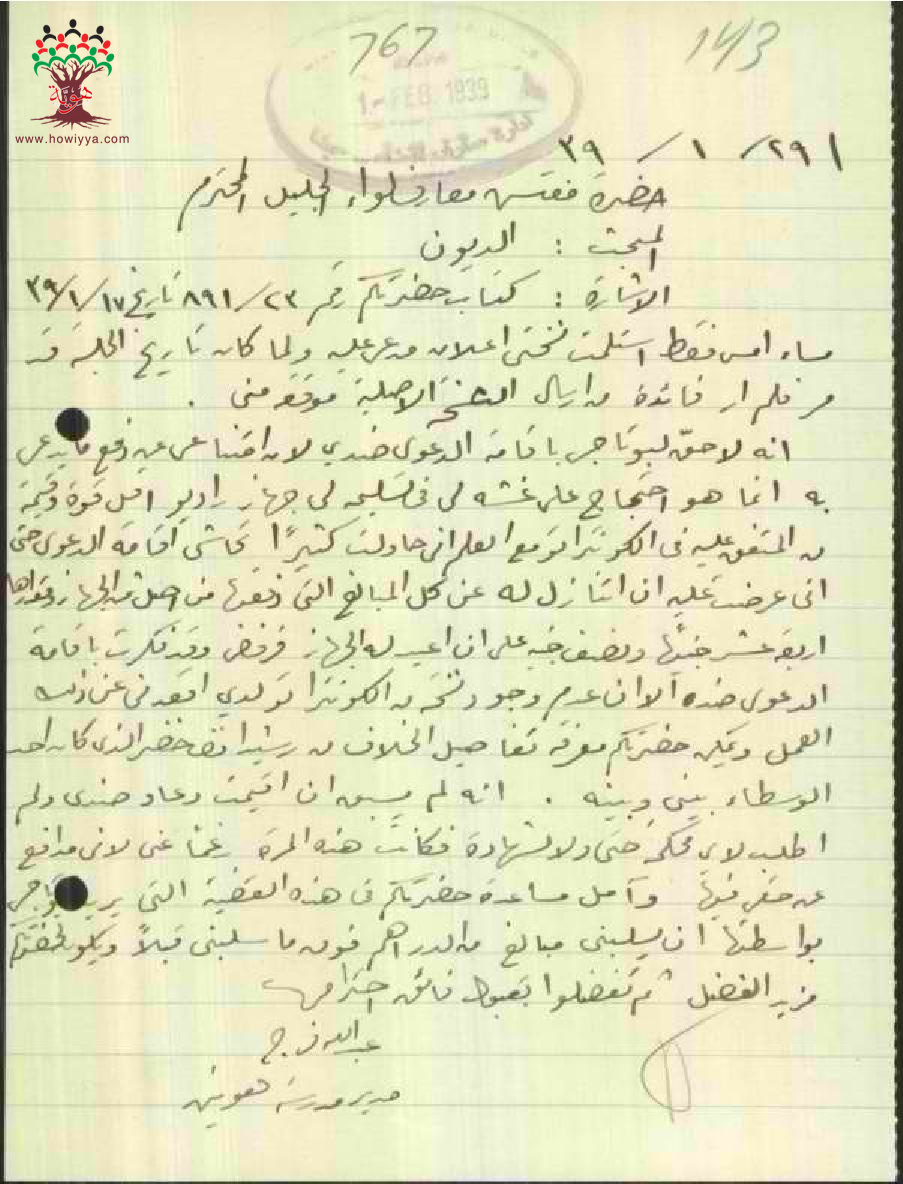 767
14/3
1 - FEB. 1939
هوية
www.howiyya.com
٢٩ / ١ / ٣٩
حضرة مفتش معارف لواء الجليل المحترم
المبحث : الديون
الاشارة : كتاب حضرتكم رقم ٢٣/ ٨٩١ تاريخ ١٧/ ١/ ٣٩
مساء امس فقط استلمت نسختي اعلان مدعى عليه ولما كان تاريخ الجلسة قد
مر فلم ار فائدة من ارسال النسخة الاصلية موقعة مني .
انه لا حق لبوتاجي باقامة الدعوى ضدي لان امتناعي عن دفع ما يدعي
به انما هو احتجاج على غشه لي في تسليمه لي جهاز راديو اقل قوة وقيمة
من المتفق عليه في الكونتراتو مع العلم اني حاولت كثيرًا تحاشي اقامة الدعوى حتى
اني عرضت عليه ان اتنازل له عن كل المبالغ التي دفعتها من اصل ثمن الجهاز وقدرها
اربعة عشر جنيهًا ونصف جنيه على ان اعيد له الجهاز فرفض وقد فكرت باقامة
الدعوى ضده الا ان عدم وجود نسخة من الكونتراتو لدي اقعدني عن ذلك
العمل ويمكن حضرتكم معرفة تفاصيل الخلاف من رشيد افندي خضر الذي كان احد
الوسطاء بيني وبينه . انه لم يسبق ان اقيمت دعاو ضدي ولم
اطلب لاي محكمة حتى ولا لشهادة فكانت هذه المرة رغمًا عني لاني مدافع
عن حقي فيها وآمل مساعدة حضرتكم في هذه القضية التي يريد بوتاجي
بواسطتها ان يسلبني مبالغ من الدراهم فوق ما سلبني قبلاً ويكون لحضرتكم
مزيد الفضل ثم تفضلوا بقبول فائق احترامي
عبد الله فرج
مدير مدرسة هونين